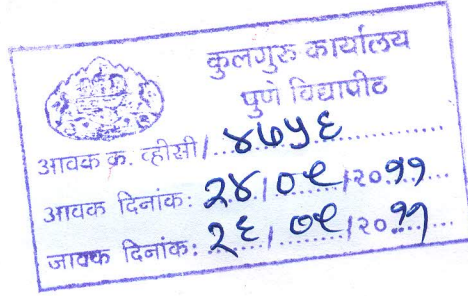 कुलगुरु कार्यालय
पुणे विद्यापीठ
आवक क्र. व्हीसी/ ४७५६
आवक दिनांक: २४/०९/२०११
जावक दिनांक: २६/०९/२०११